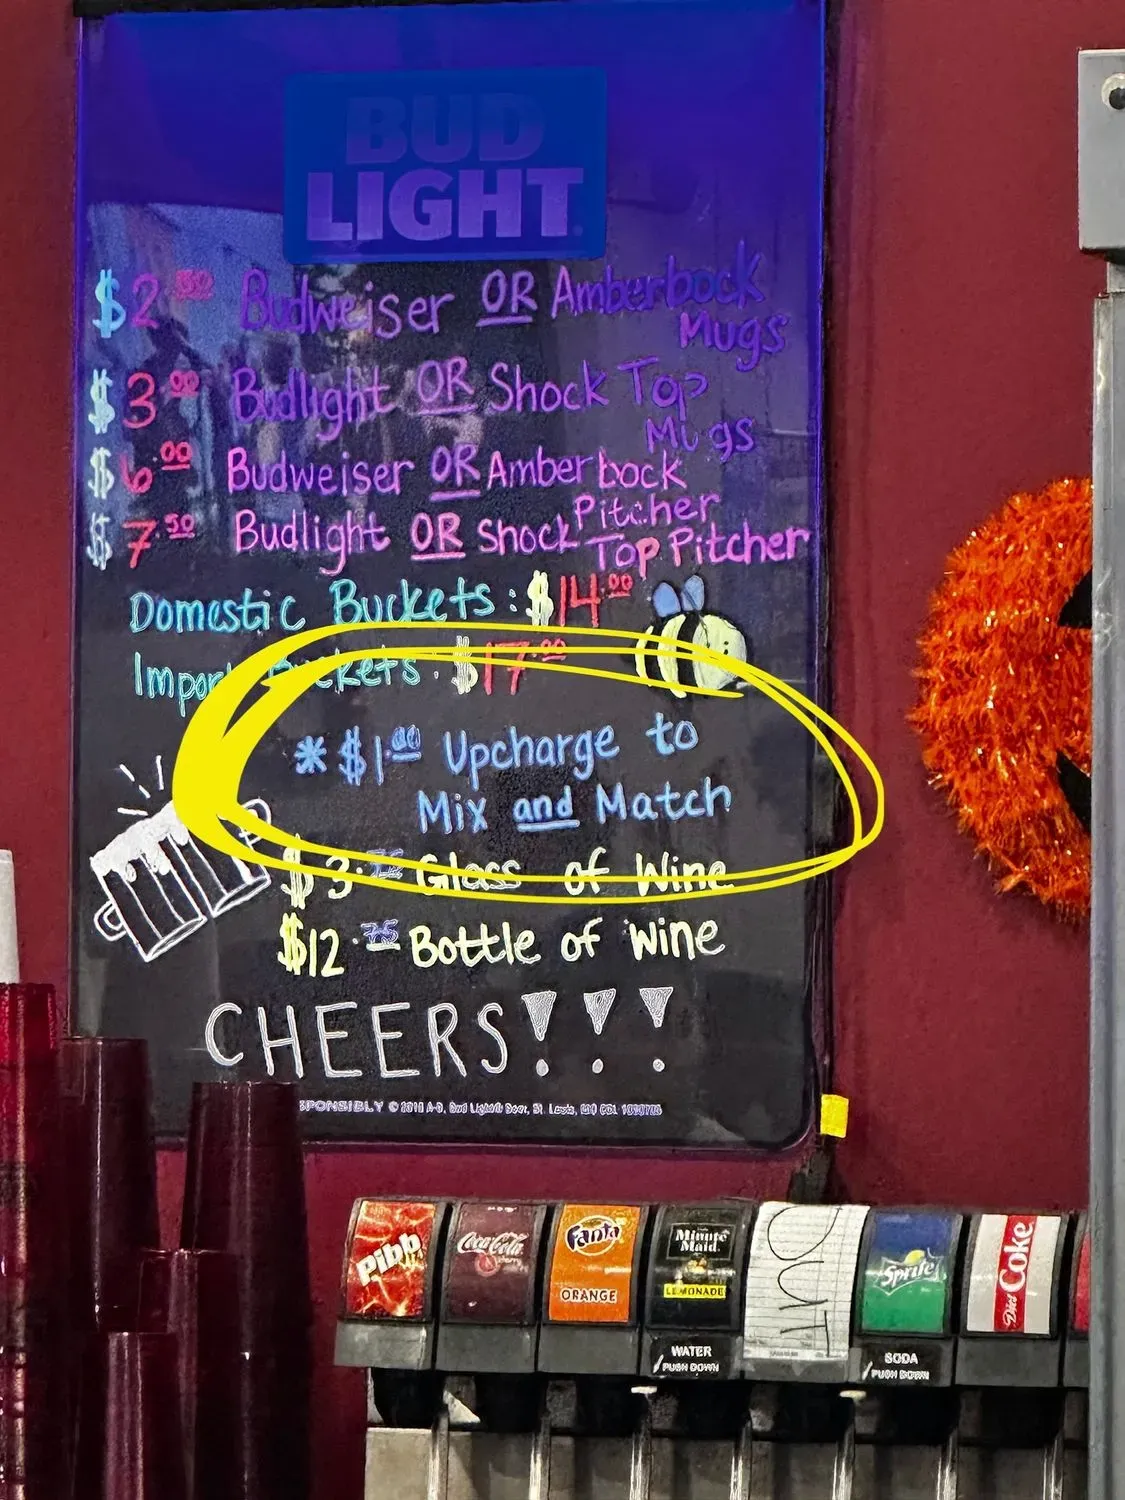 BUD
LIGHT
$2.50 Budweiser OR Amberbock
Mugs
$3.00 Budlight OR Shock Top
Mugs
$6.00 Budweiser OR Amberbock
Pitcher
$7.50 Budlight OR Shock Top Pitcher
Domestic Buckets: $14.00
Import Buckets: $17.00
*$1.00 Upcharge to
Mix and Match
$3.75 Glass of Wine
$12.75 Bottle of Wine
CHEERS!!!
Pibb
Coca-Cola
Fanta
ORANGE
Minute
Maid
LEMONADE
WATER
PUSH DOWN
OUT
Sprite
SODA
PUSH DOWN
Diet Coke